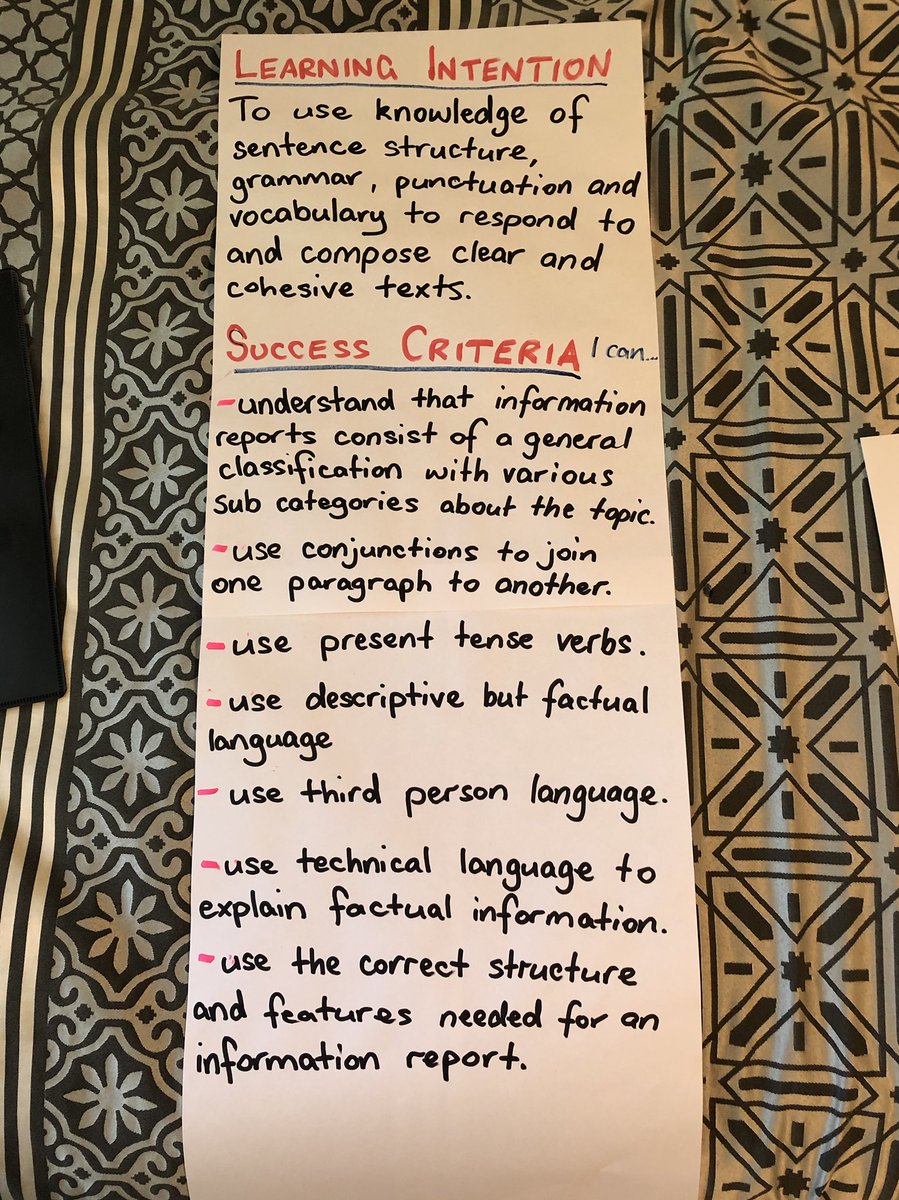 LEARNING INTENTION
To use knowledge of
sentence structure,
grammar, punctuation and
vocabulary to respond to
and compose clear and
cohesive texts.
SUCCESS CRITERIA I can...
-understand that information
reports consist of a general
classification with various
sub categories about the topic.
-use conjunctions to join
one paragraph to another.
-use present tense verbs.
-use descriptive but factual
language
- use third person language.
-use technical language to
explain factual information.
-use the correct structure
and features needed for an
information report.